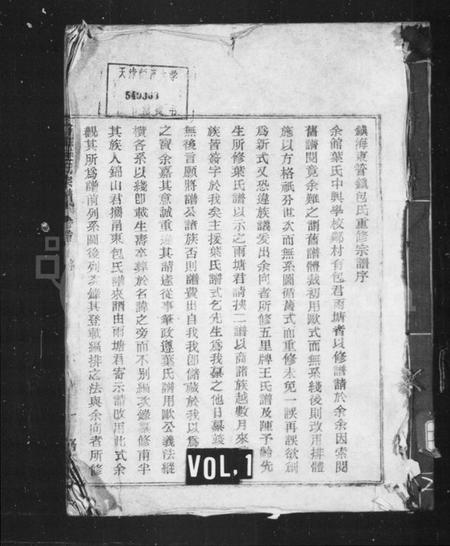 鎮海東管鎮包氏重修宗譜序
余館葉氏中興學校鄰村有包君雨塘者以修譜請於余余因索閱
舊譜閱竟余難之謂舊譜體裁初用歐式而無系綫後則改用排體
施以方格祇分世次而無系圖循舊式而重修未免一誤再誤欲創
為新式又恐違族議爰出余向者所修五里牌王氏譜及陳予齡先
生所修葉氏譜以示之雨塘君請挾二譜以商諸族越數月來
族皆簽字於我矣主援葉氏譜式乞先生為我纂之他日纂竣
無後言願將譜公諸族否則譜費出自我我卽儲藏於我以為
之寶余嘉其意誠重違其請遂從事筆政遵葉氏譜用歐公義法縱
橫各系以綫卽載生壽卒葬於名諱之旁而不別編次錄纂修甫半
其族人錦山君攜甬東包氏譜來謂由雨塘君寄示請改用此式余
觀其所為譜前列系圖後列 錄其登載編排之法與余向者所修
天津 學
549363
VOL. 1